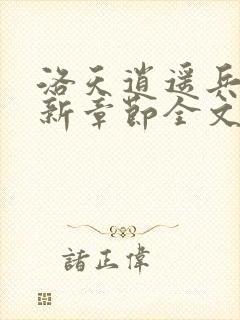 洛天逍遥兵
新章节全文
诸正伟